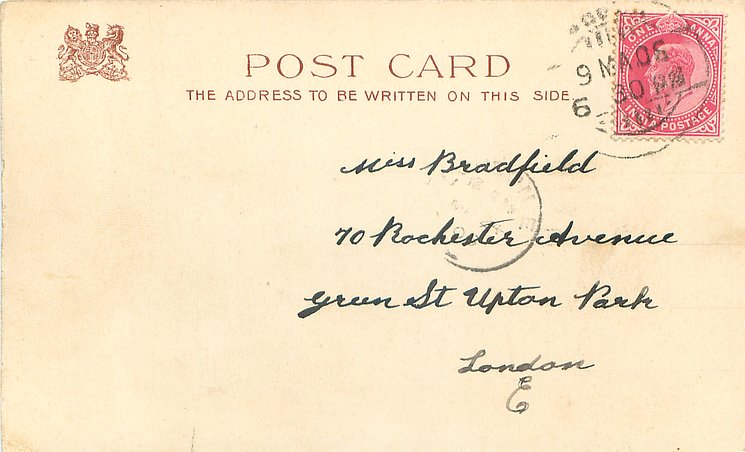 POST CARD
THE ADDRESS TO BE WRITTEN ON THIS SIDE
ONE ANNA
INDIA POSTAGE
9 MA 05
6 30
Miss Bradfield
70 Rochester Avenue
Green St Upton Park
London
E